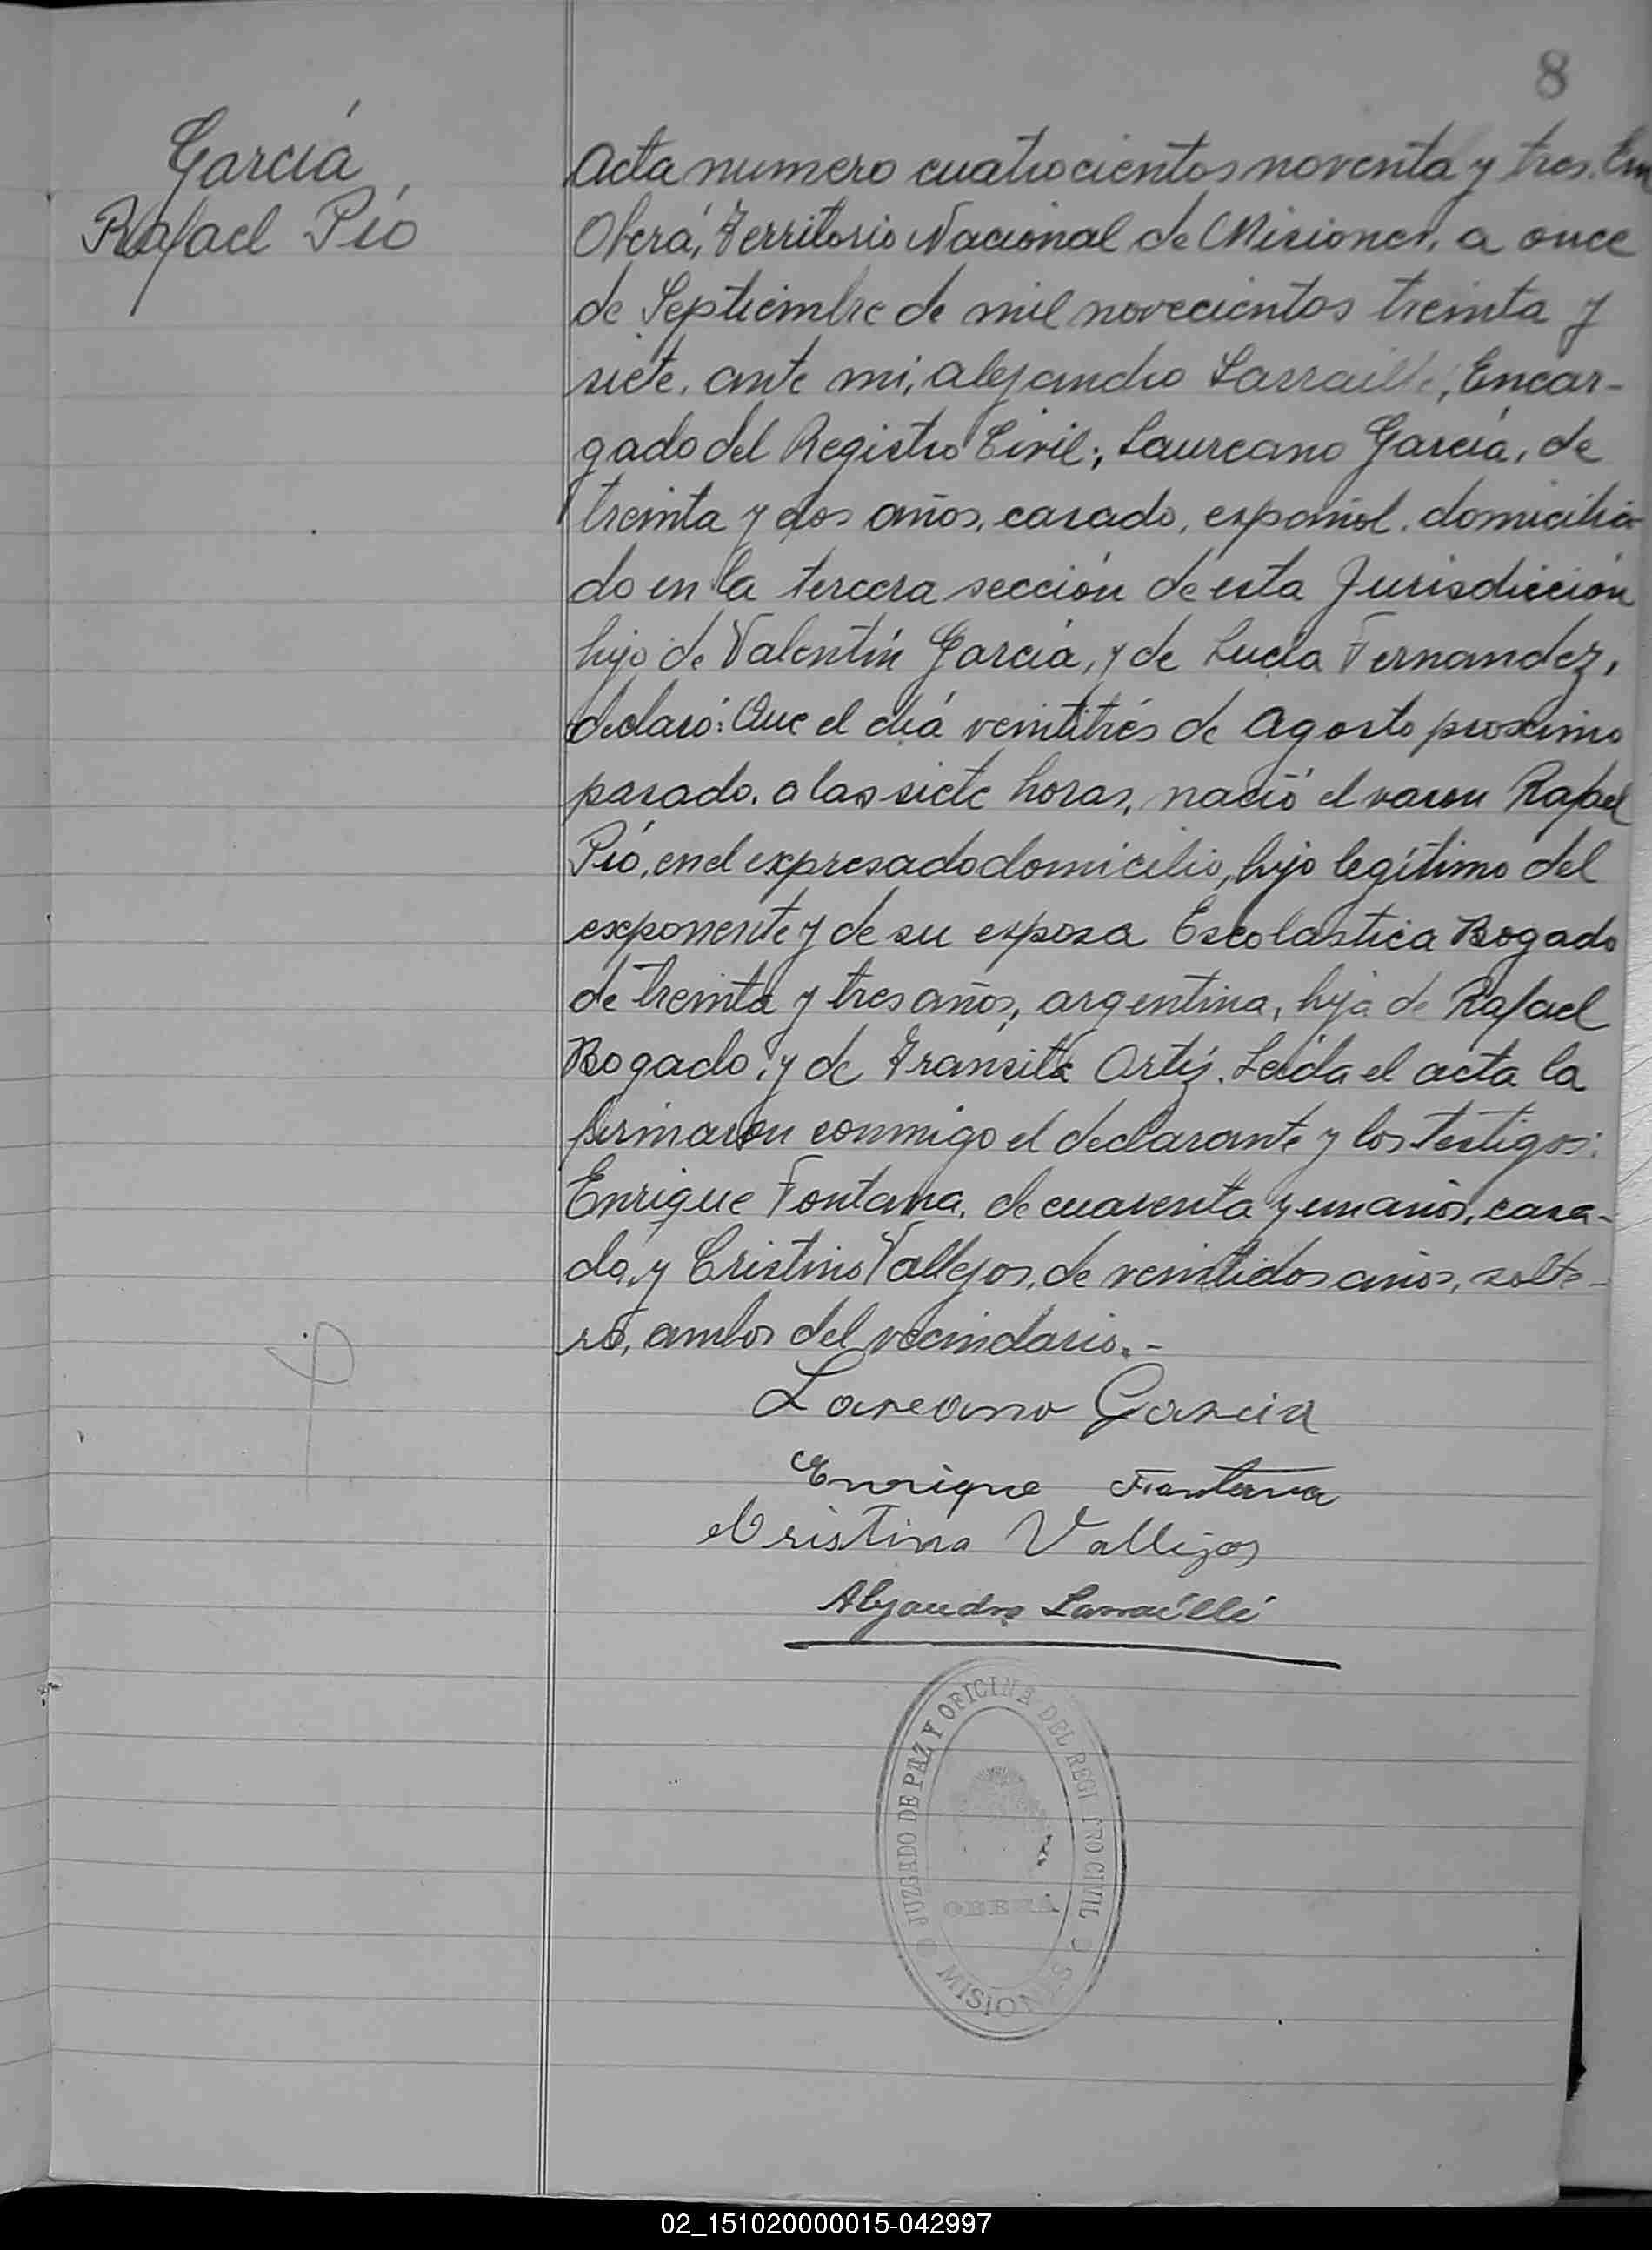 8
García
Rafael Pío
Acta numero cuatrocientos noventa y tres. En
Oberá, Territorio Nacional de Misiones, a once
de Septiembre de mil novecientos treinta y
siete, ante mi, Alejandro Larraillé, Encar-
gado del Registro Civil; Laureano García, de
treinta y dos años, casado, español, domicilia-
do en la tercera sección de esta Jurisdicción
hijo de Valentín García, y de Lucía Fernandez,
declaró: Que el día veintitrés de Agosto proximo
pasado, a las siete horas, nació el varon Rafael
Pío, en el expresado domicilio, hijo legítimo del
exponente y de su esposa Escolastica Bogado
de treinta y tres años, argentina, hija de Rafael
Bogado, y de Transita Ortíz. Leída el acta la
firmaron conmigo el declarante y los testigos:
Enrique Fontana, de cuarenta y un años, casa-
do, y Cristino Vallejos, de veintidos años, solte-
ro, ambos del vecindario.-
Lareano Garcia
Enrique Fontana
Cristino Vallejos
Alejandro Larraillé
JUZGADO DE PAZ Y OFICINA DEL REGI TRO CIVIL
OBERÁ
MISIONES
02_151020000015-042997